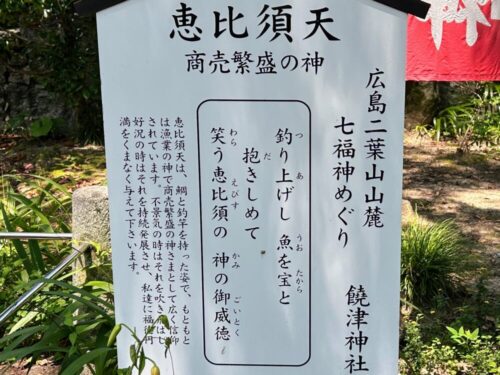 恵比須天
商売繁盛の神
広島二葉山山麓
七福神めぐり
饒津神社
釣り上げし 魚を宝と
つ あ うお たから
抱きしめて
だ
笑う恵比須の 神の御威徳
わら えびす かみ ごいとく
恵比須天は、鯛と釣竿を持った姿で、もともと
は漁業の神で商売繁盛の神さまとして広く信仰
されています。不景気の時はそれを吹きとばし
好況の時はそれを持続発展させ、私達に福徳円
満をくまなく与えて下さいます。